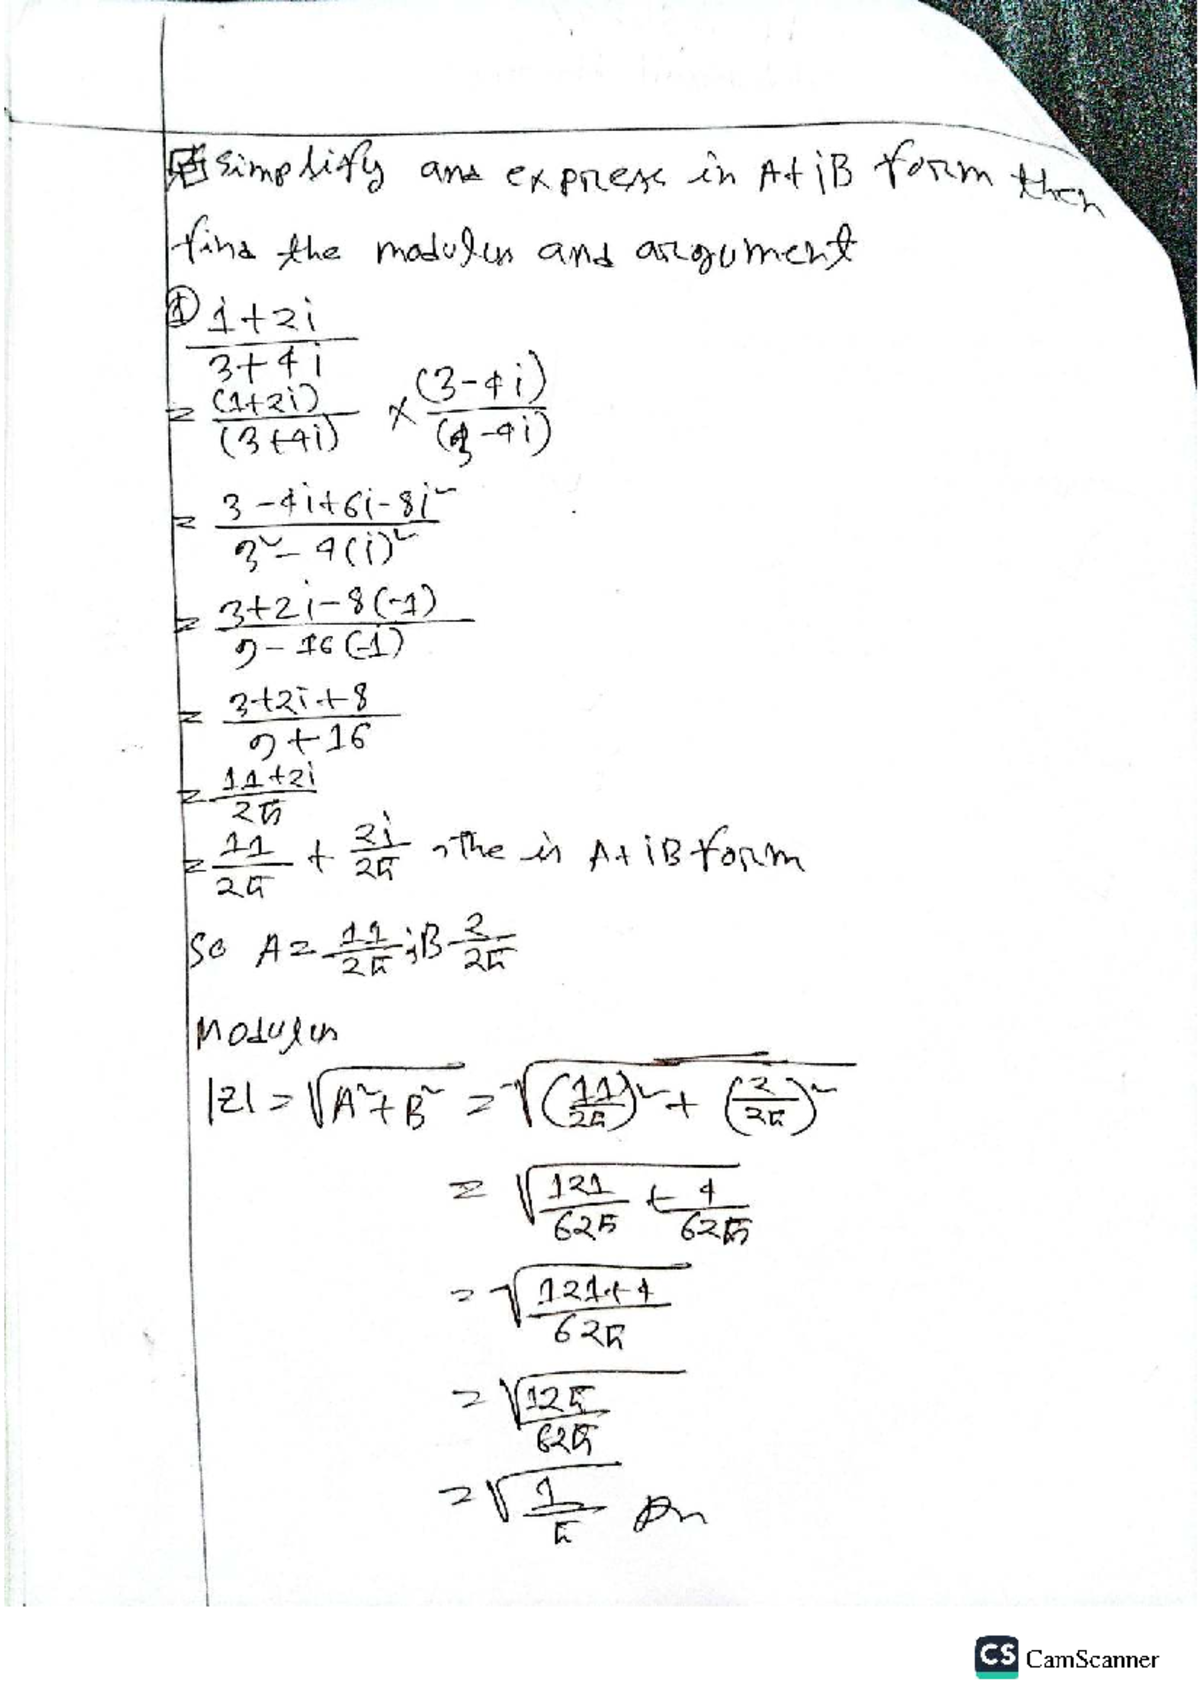 Simplify and express in A+iB form then
find the modulus and argument
① 1+2i / 3+4i
= (1+2i)/(3+4i) × (3-4i)/(3-4i)
= 3-4i+6i-8i² / 3²-4(i)²
= 3+2i-8(-1) / 9-16(-1)
= 3+2i+8 / 9+16
= 11+2i / 25
= 11/25 + 2i/25, the is A+iB form
So A = 11/25; B 2/25
Modulus
|z| = √(A²+B²) = √((11/25)² + (2/25)²)
= √(121/625 + 4/625)
= √(121+4 / 625)
= √(125/625)
= √(1/5) An
CS CamScanner